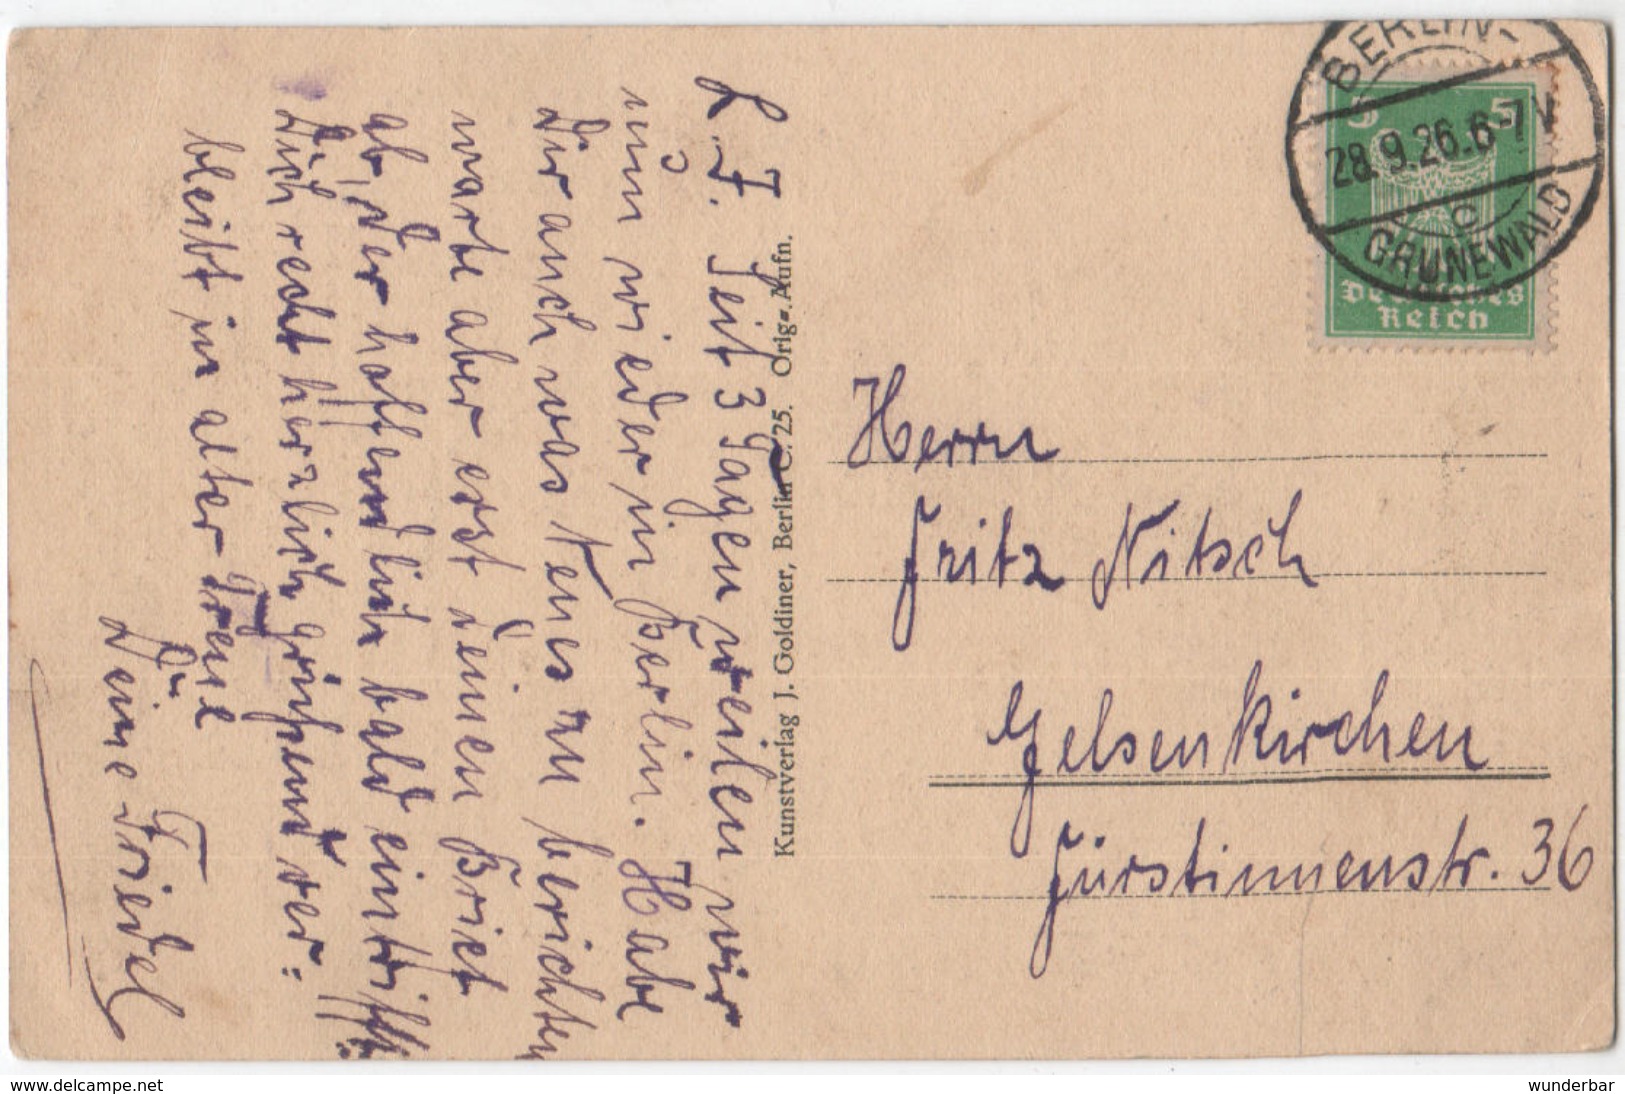 L. F. Seit 3 Tagen weilen wir
nun wieder in Berlin. Habe
Dir auch was Neues zu berichten
warte aber erst deinen Brief
ab, der hoffendlich bald eintrifft.
Dich recht herzlich grüßend ver-
bleibt in alter Treue
Deine Friedel
Kunstverlag J. Goldiner, Berlin C. 25. Orig.-Aufn.
BERLIN-
28.9.26.6-7V
c
GRUNEWALD
5 5
Deutsches
Reich
Herrn
Fritz Nitsch
Gelsenkirchen
Fürstinnenstr. 36
www.delcampe.net
wunderbar